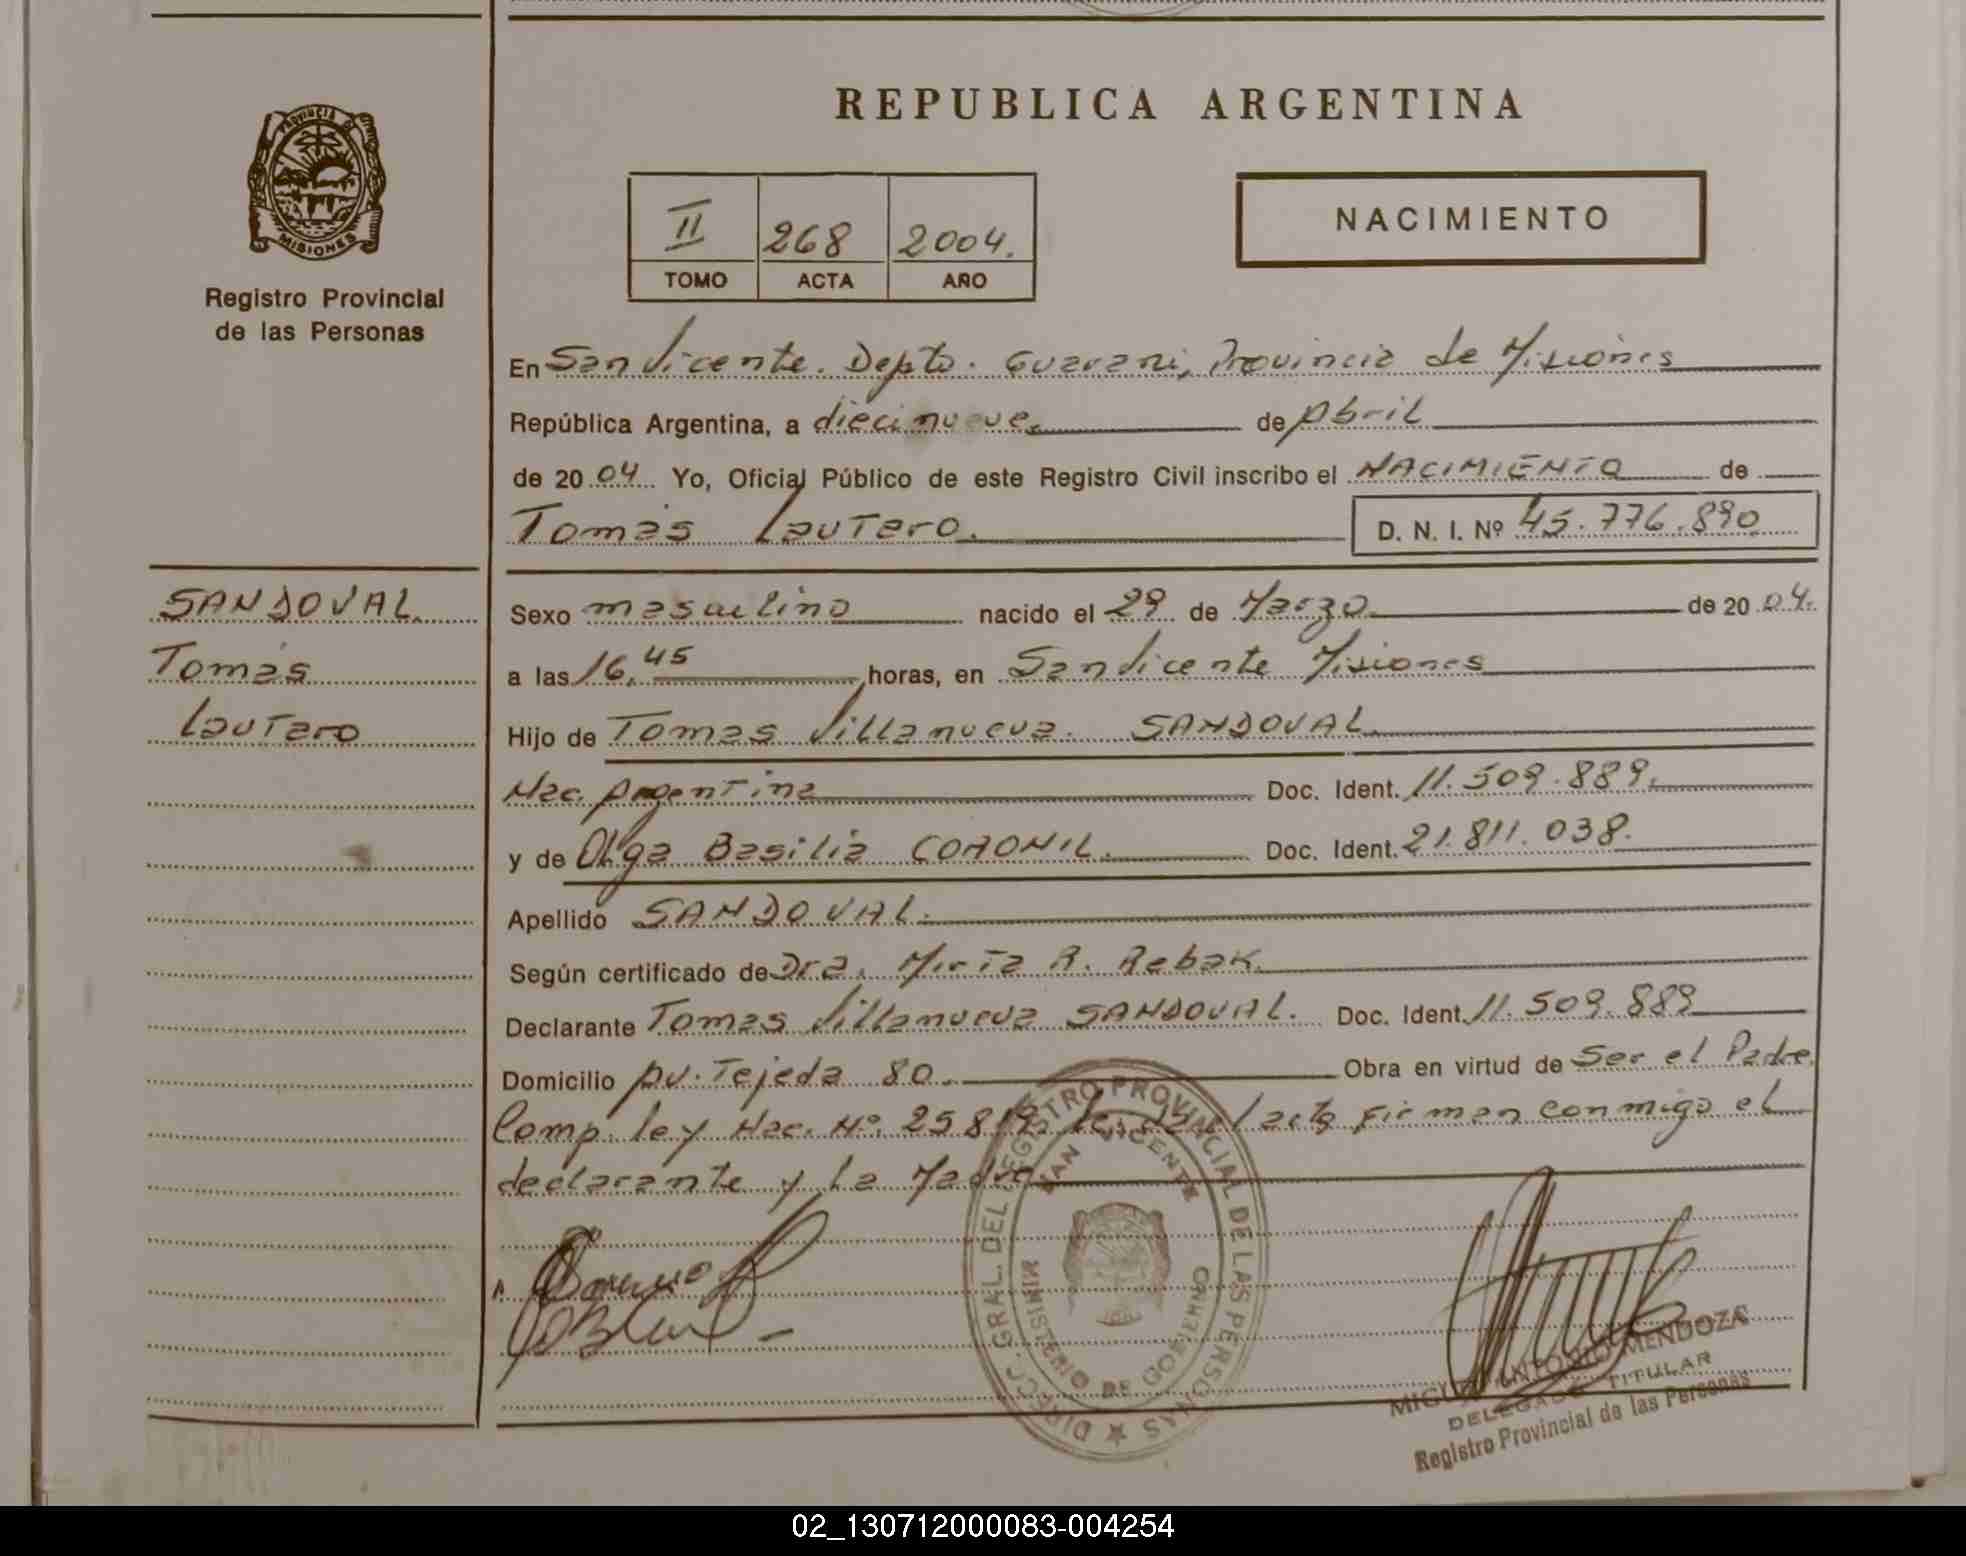 REPUBLICA ARGENTINA
PROVINCIA DE MISIONES
Registro Provincial
de las Personas
II 268 2004.
TOMO ACTA AÑO
NACIMIENTO
En San Vicente. Depto. Guarani, Provincia de Misiones
República Argentina, a diecinueve. de Abril
de 2004 Yo, Oficial Público de este Registro Civil inscribo el NACIMIENTO de
Tomás Lautaro. D. N. I. Nº 45.776.890
SANDOVAL.
Tomás
Lautaro
Sexo masculino nacido el 29 de Marzo de 2004.
a las 16,45 horas, en San Vicente Misiones
Hijo de Tomas Villanueva. SANDOVAL
Nac. Argentina Doc. Ident. 11.509.889.
y de Olga Basilia CORONIL. Doc. Ident. 21.811.038.
Apellido SANDOVAL.
Según certificado de Dra. Mirta R. Rebak.
Declarante Tomas Villanueva SANDOVAL. Doc. Ident. 11.509.889
Domicilio Av. Tejeda 80. Obra en virtud de Ser el Padre.
Comp. ley Nac. Nº. 25819. leida el acta firman conmigo el
declarante y La Madre
DIRECC. GRAL. DEL REGISTRO PROVINCIAL DE LAS PERSONAS
SAN VICENTE
MINISTERIO DE GOBIERNO
MIGUEL ANTONIO MENDOZA
DELEGADO TITULAR
Registro Provincial de las Personas
02_130712000083-004254